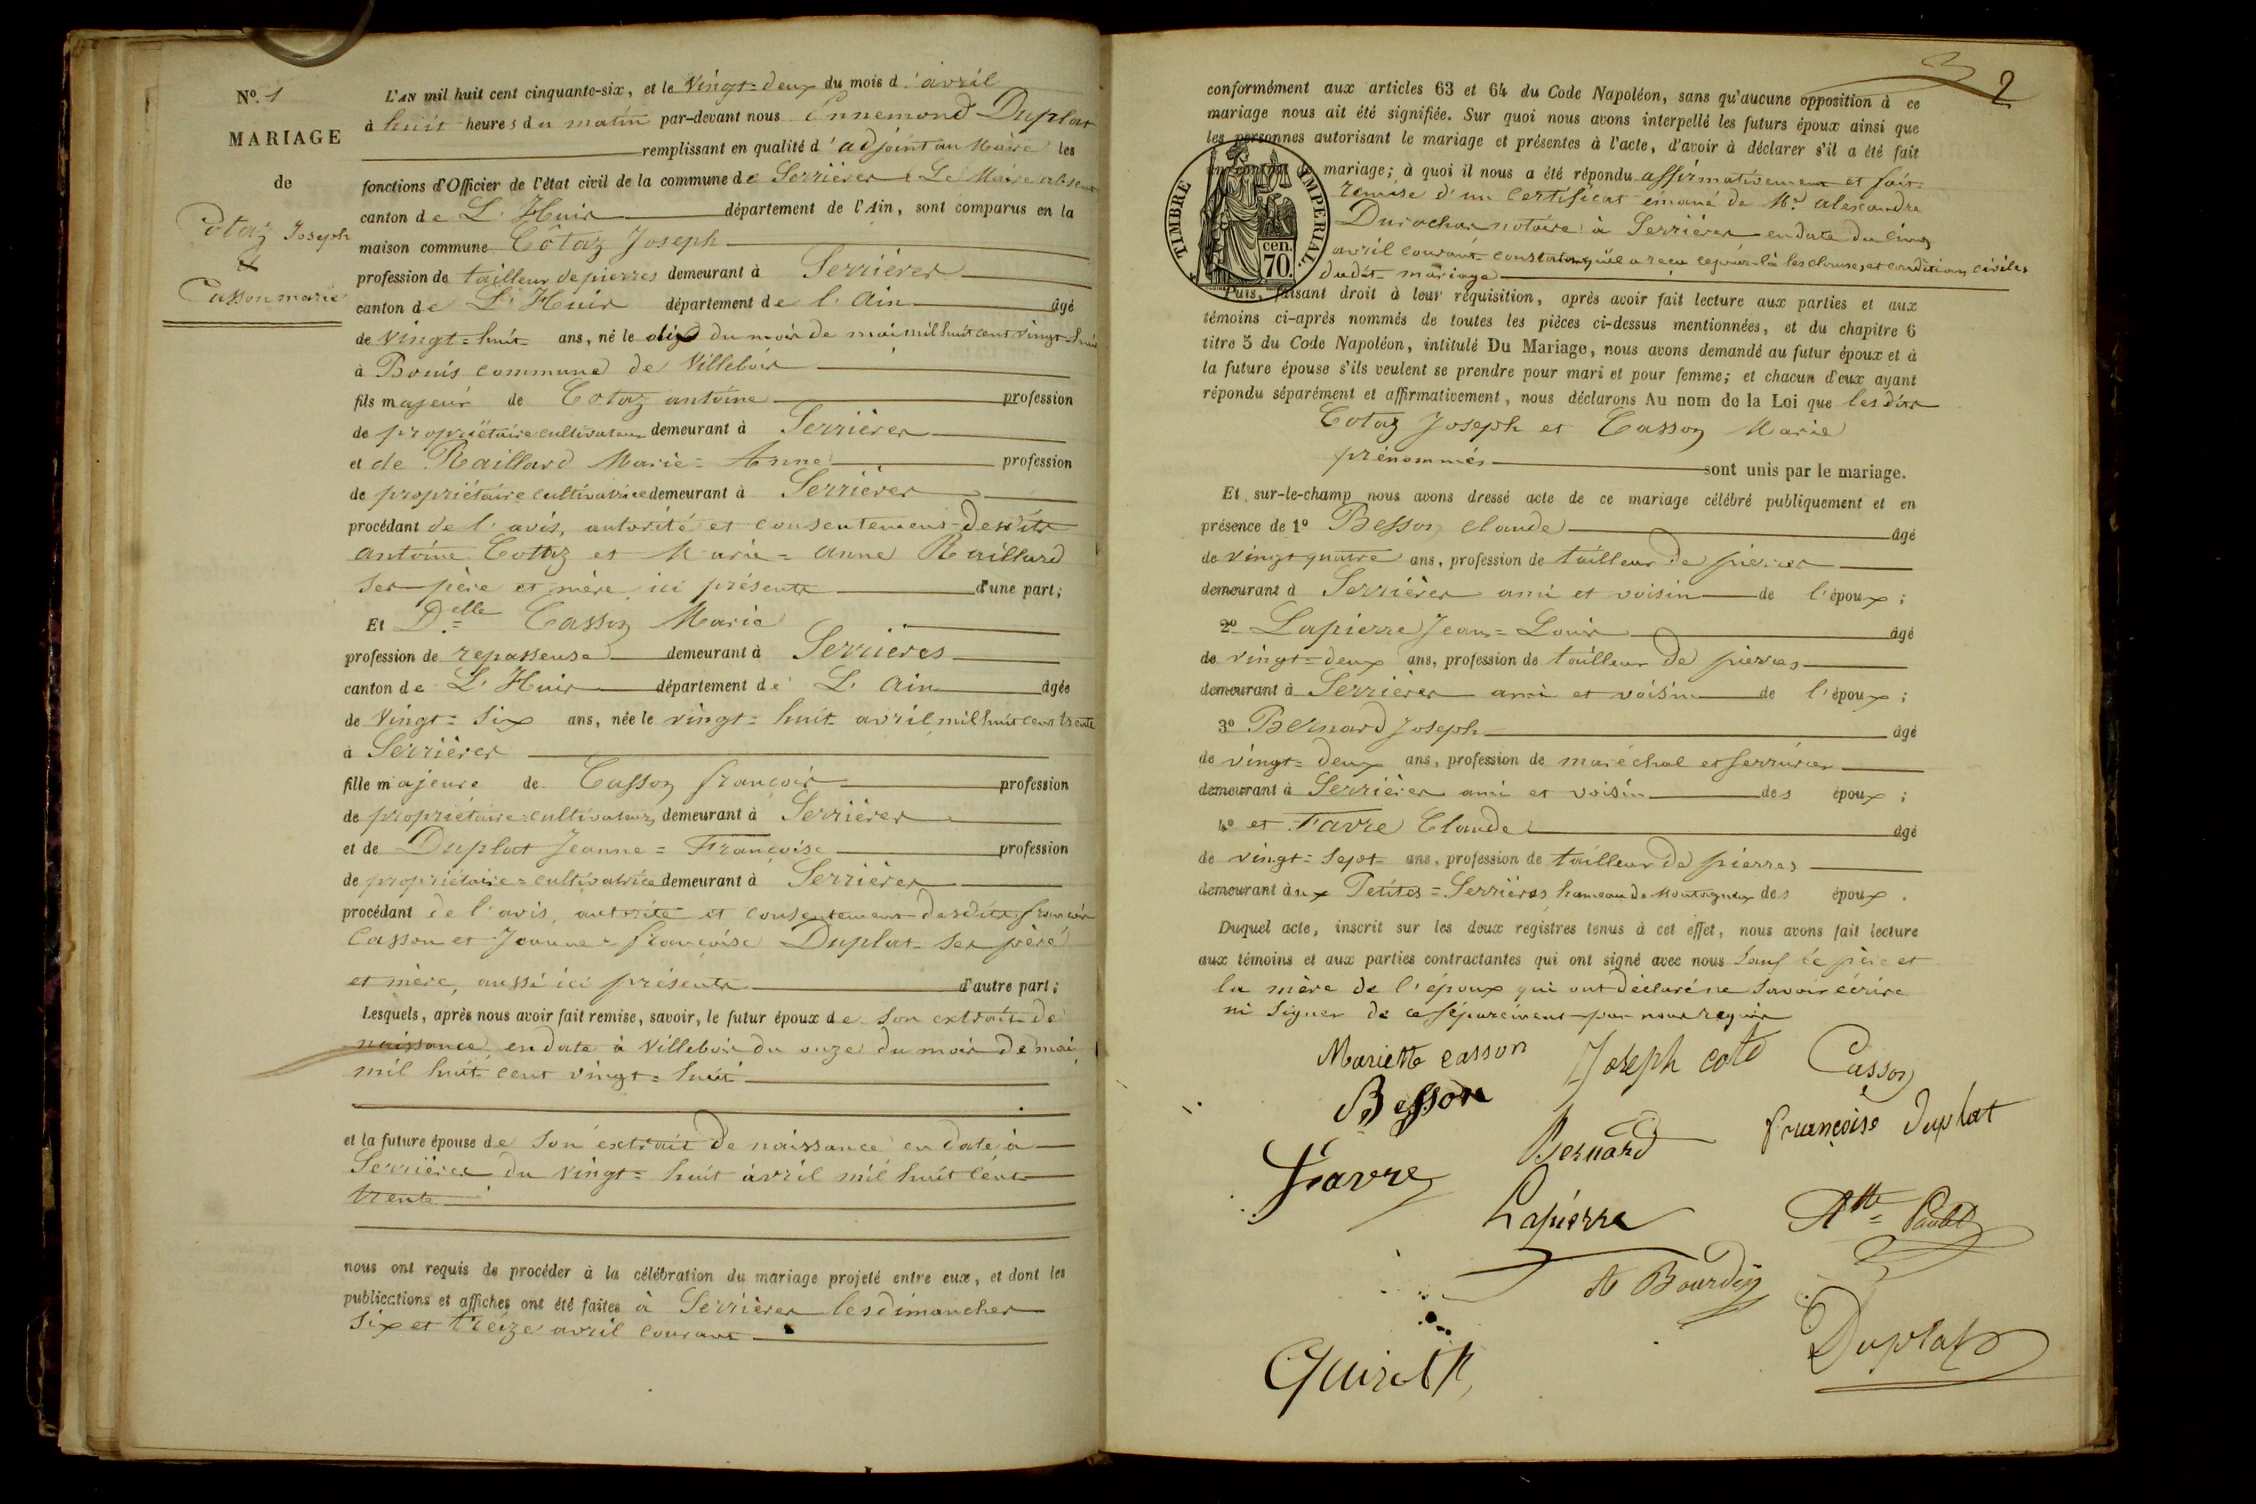 N.º 1
MARIAGE
de
Cotaz Joseph
et
Casson marie
L'AN mil huit cent cinquante-six, et le Vingt=deux du mois d'avril
à huit heures du matin par-devant nous Ennemond Duplat
remplissant en qualité d'adjoint au Maire les
fonctions d'Officier de l'état civil de la commune de Serrières Le Maire absent
canton de L'Huis département de l'Ain, sont comparus en la
maison commune Cotaz Joseph
profession de tailleur de pierres demeurant à Serrières
canton de L'Huis département de l'Ain âgé
de Vingt=huit ans, né le dix du mois de mai mil huit cent vingt=huit
à Bouis commune de Villebois
fils majeur de Cotaz antoine profession
de propriétaire cultivateur demeurant à Serrières
et de Raillard Marie=Anne profession
de propriétaire cultivatrice demeurant à Serrières
procédant de l'avis, autorité et consentement desdits
antoine Cottaz et Marie=anne Raillard
ses père et mère ici présents d'une part;
Et D.elle Casson Marie
profession de repasseuse demeurant à Serrières
canton de L'Huis département de L'Ain âgée
de Vingt=Six ans, née le vingt=huit avril mil huit cent trente
à Serrières
fille majeure de Casson françois profession
de propriétaire=cultivateur demeurant à Serrières
et de Duplat Jeanne=Françoise profession
de propriétaire=cultivatrice demeurant à Serrières
procédant de l'avis, autorité et consentement desdits françois
Casson et Jeanne=françoise Duplat ses père
et mère, aussi ici présents d'autre part;
Lesquels, après nous avoir fait remise, savoir, le futur époux de son extrait de
naissance en date à Villebois du onze du mois de mai
mil huit cent vingt=huit
et la future épouse de son extrait de naissance en date à
Serrières du vingt=huit avril mil huit cent
trente
nous ont requis de procéder à la célébration du mariage projeté entre eux, et dont les
publications et affiches ont été faites à Serrières les dimanches
six et treize avril courant
2
conformément aux articles 63 et 64 du Code Napoléon, sans qu'aucune opposition à ce
mariage nous ait été signifiée. Sur quoi nous avons interpellé les futurs époux ainsi que
les personnes autorisant le mariage et présentes à l'acte, d'avoir à déclarer s'il a été fait
mariage; à quoi il nous a été répondu affirmativement et fait
remise d'un certificat émané de Me alexandre
Durochat notaire à Serrières en date du cinq
avril courant constatant qu'il a reçu ce jour-là les clauses et conditions civiles
dudit mariage
TIMBRE IMPERIAL.
70 cen.
Puis, faisant droit à leur réquisition, après avoir fait lecture aux parties et aux
témoins ci-après nommés de toutes les pièces ci-dessus mentionnées, et du chapitre 6
titre 5 du Code Napoléon, intitulé Du Mariage, nous avons demandé au futur époux et à
la future épouse s'ils veulent se prendre pour mari et pour femme; et chacun d'eux ayant
répondu séparément et affirmativement, nous déclarons Au nom de la Loi que lesdits
Cotaz Joseph et Casson Marie
prénommés sont unis par le mariage.
Et sur-le-champ nous avons dressé acte de ce mariage célébré publiquement et en
présence de 1º Besson Claude âgé
de vingt quatre ans, profession de tailleur de pierres
demeurant à Serrières ami et voisin de l'époux;
2º Lapierre Jean=Louis âgé
de vingt=deux ans, profession de tailleur de pierres
demeurant à Serrières ami et voisin de l'époux;
3º Bernard Joseph âgé
de vingt=deux ans, profession de maréchal et serrurier
demeurant à Serrières ami et voisin des époux;
4º et Favre Claude âgé
de vingt=sept ans, profession de tailleur de pierres
demeurant aux Petites=Serrières hameau de Montagnieu des époux.
Duquel acte, inscrit sur les deux registres tenus à cet effet, nous avons fait lecture
aux témoins et aux parties contractantes qui ont signé avec nous sauf le père et
la mère de l'époux qui ont déclaré ne savoir écrire
ni signer de ce séparément par nous requis
Mariette casson Joseph cote Casson
Besson
Bernard françoise duplat
Favre
Lapierre
A Bourdin
Duplat